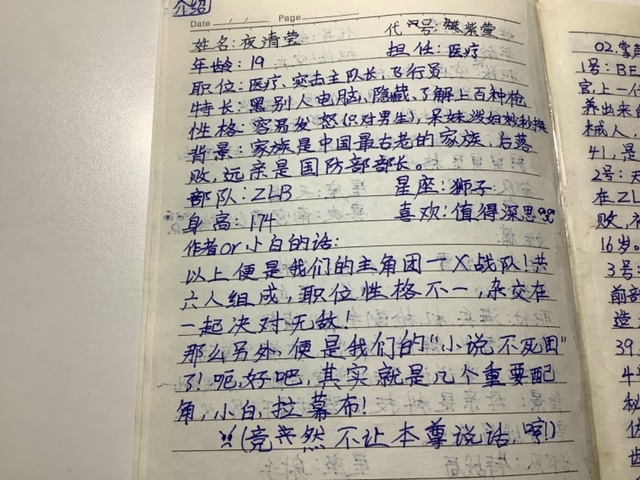 介绍
Date / / Page
姓名:夜清莹 代号:紫萤
年龄:19 担任:医疗
职位:医疗、突击主队长,飞行员
特长:黑别人电脑,隐藏,了解上百种枪
性格:容易发怒(只对男生),呆妹泼妇妙秒换
背景:家族是中国最古老的家族,后落
败,远亲是国防部部长。
部队:ZLB 星座:狮子
身高:174 喜欢:值得深思
作者or小白的话:
以上便是我们的主角团一X战队!共
六人组成,职位性格不一,杂交在
一起决对无敌!
那么另外,便是我们的"小说不死田"
了!呃,好吧,其实就是几个重要配
角,小白,拉幕布!
(竟然不让本尊说话,哼!)
02.掌
1号:BE
官上一
养出来
械人
41,是
2号:天
在ZL
败,
16岁。
3号:
前部
造
39,
牛
秘